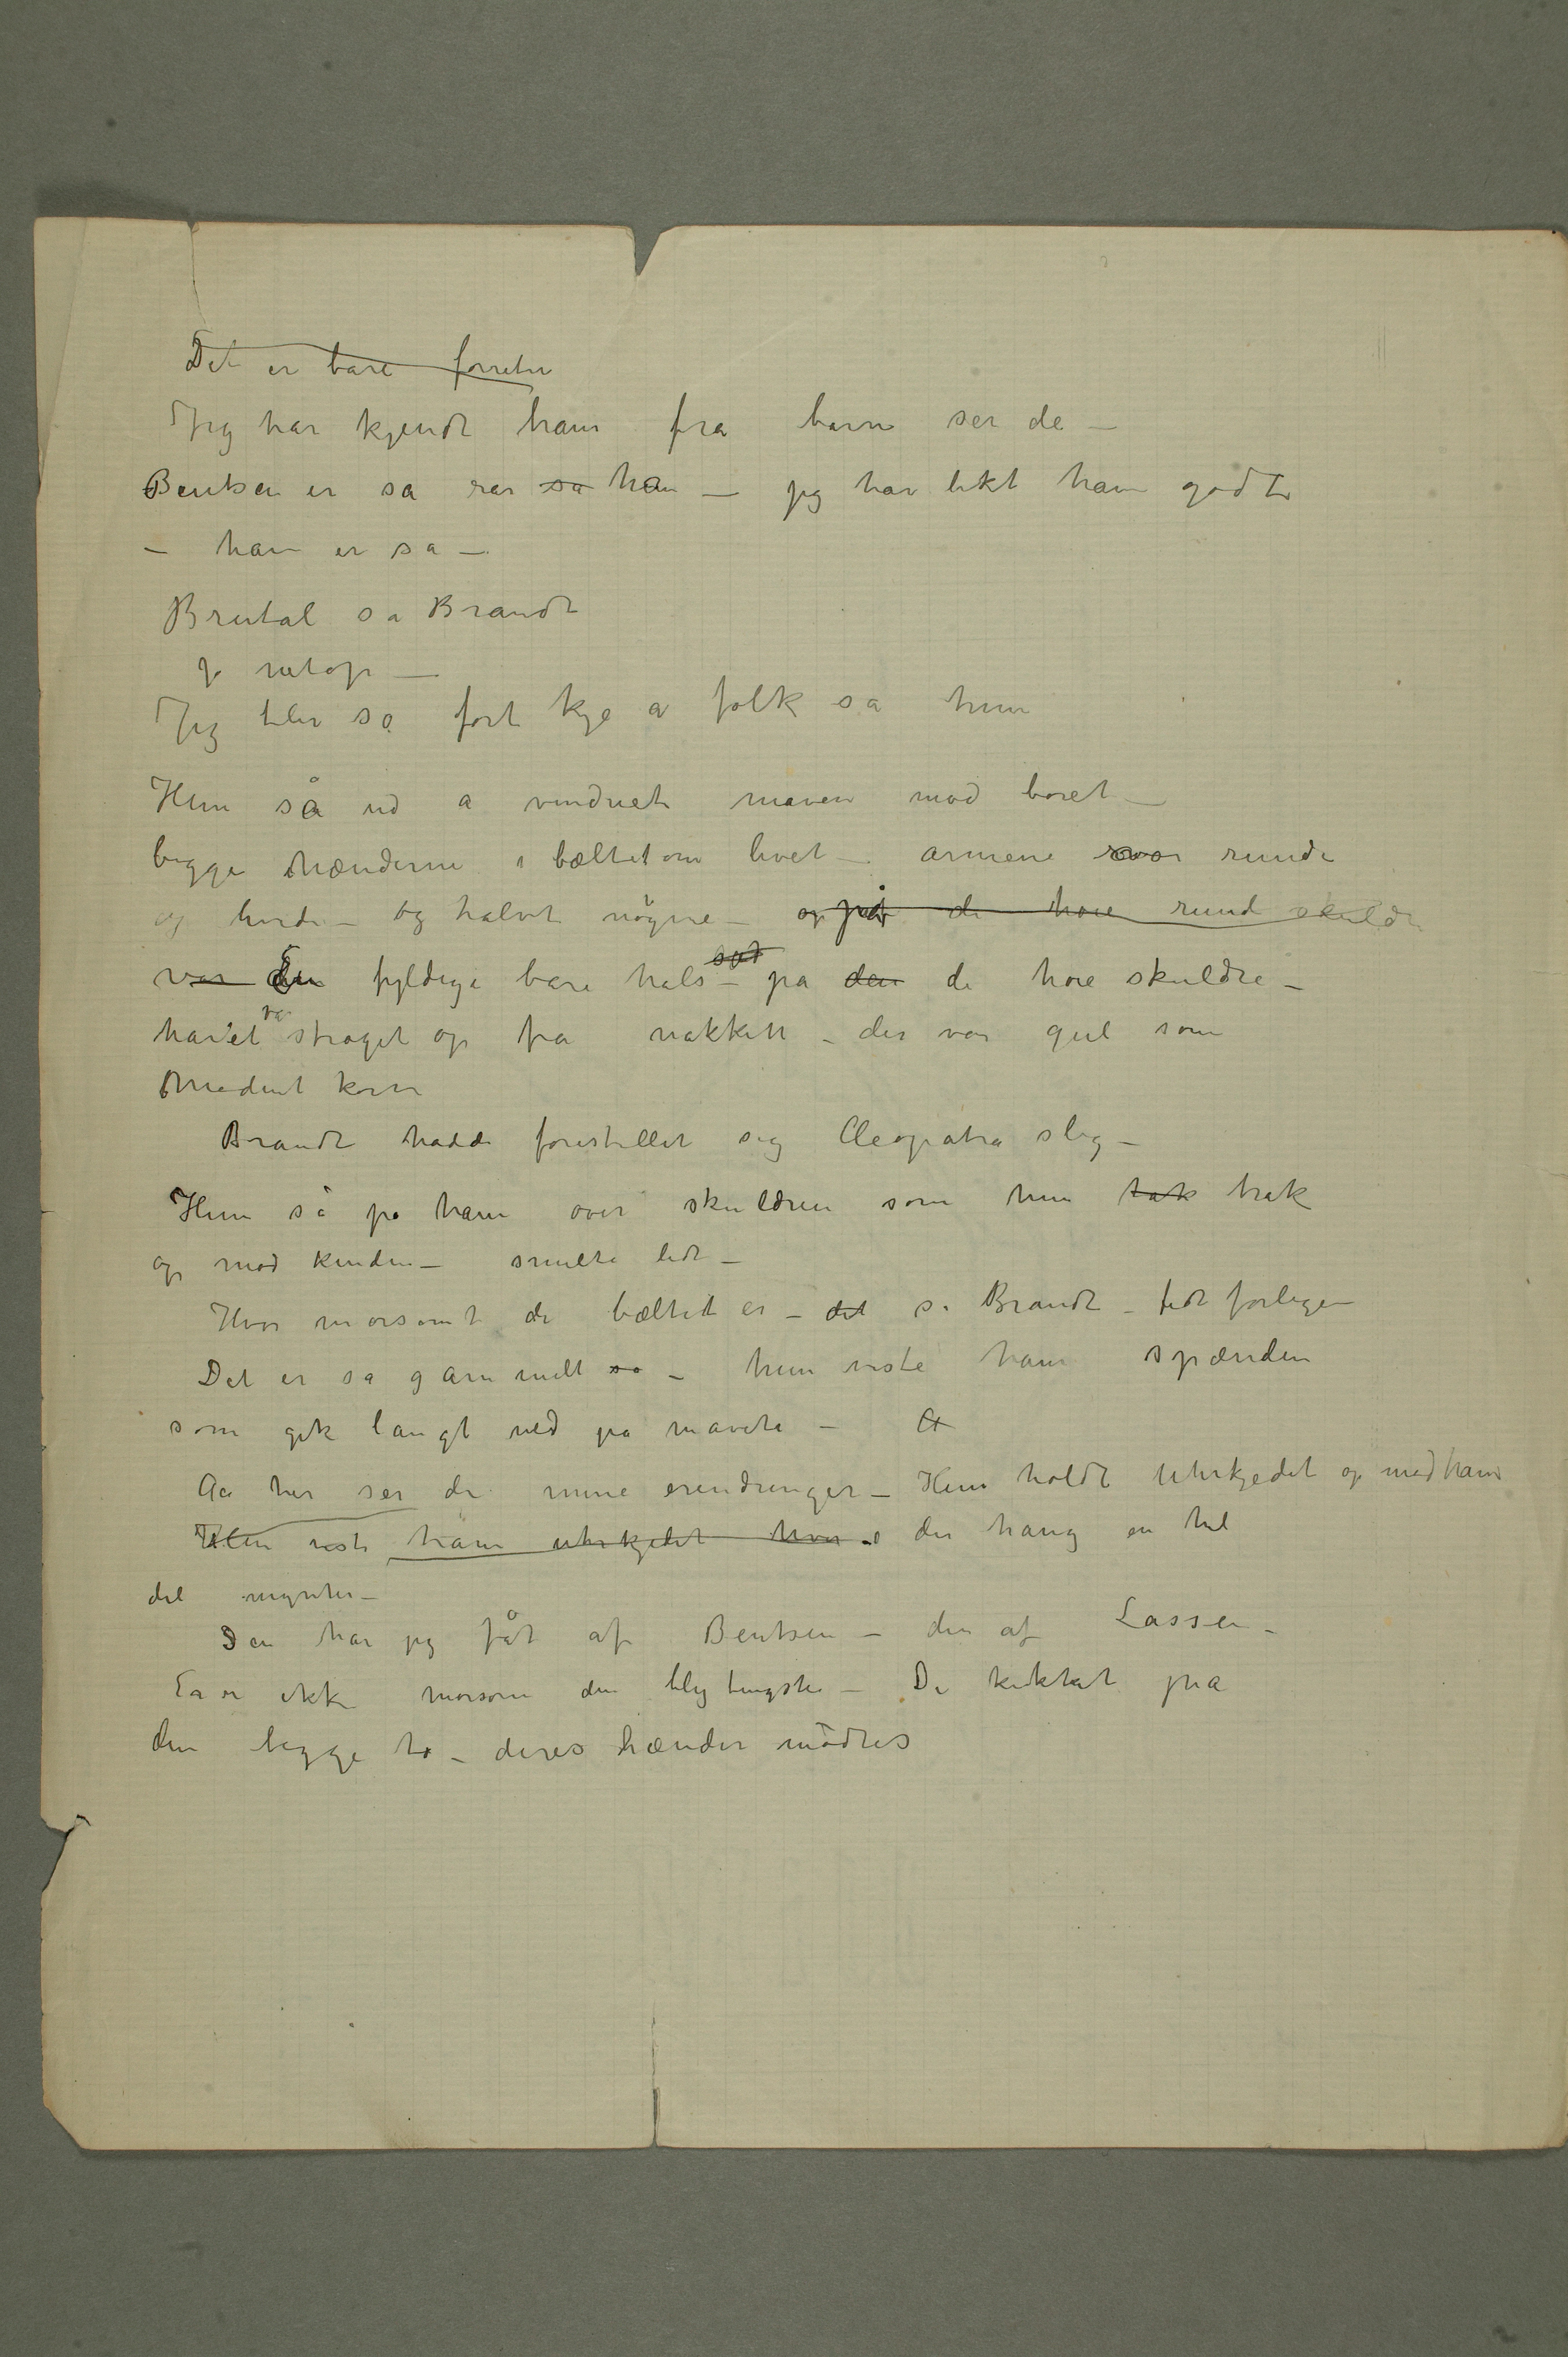 Det er bare forretn
Jeg har kjendt ham fra barn ser de –
Bentsen er så rar så han – jeg har likt ham godt
– han er så –
Brutal sa Brandt
Jo netop –
Jeg blir så fort kje a folk sa hun
Hun så ud a vinduet maven mod boret –
begge hænderne i bæltet om livet – armene var runde
og hvide – og halvt nøgne – og på de høie rund skuldr
var Den fyldige bare hals – sat på den de høie skuldre –
haret var strøget op fra nakken – der var gul som
Modent korn
Brandt hadde forestillet sig Cleopatra slig –
Hun så på ham over skuldren som hun tak trak
op mod kinden – smilte lidt –
Hvor morsomt de bæltet er – det sa Brandt – lidt forlegen
Det er så gammelt så – hun viste ham spænden
som gik langt ned på maven –
Aa her ser de mine erindringer – Hun holdt Uhrkjedet op mod ham
Hun viste ham uhrkjedet hvor der hang en hel
del mynter –
Den har jeg fåt af Bentsen – den af Lassen –
Er ikke morsom den – De kikket på
den begge to – deres hænder mødtes